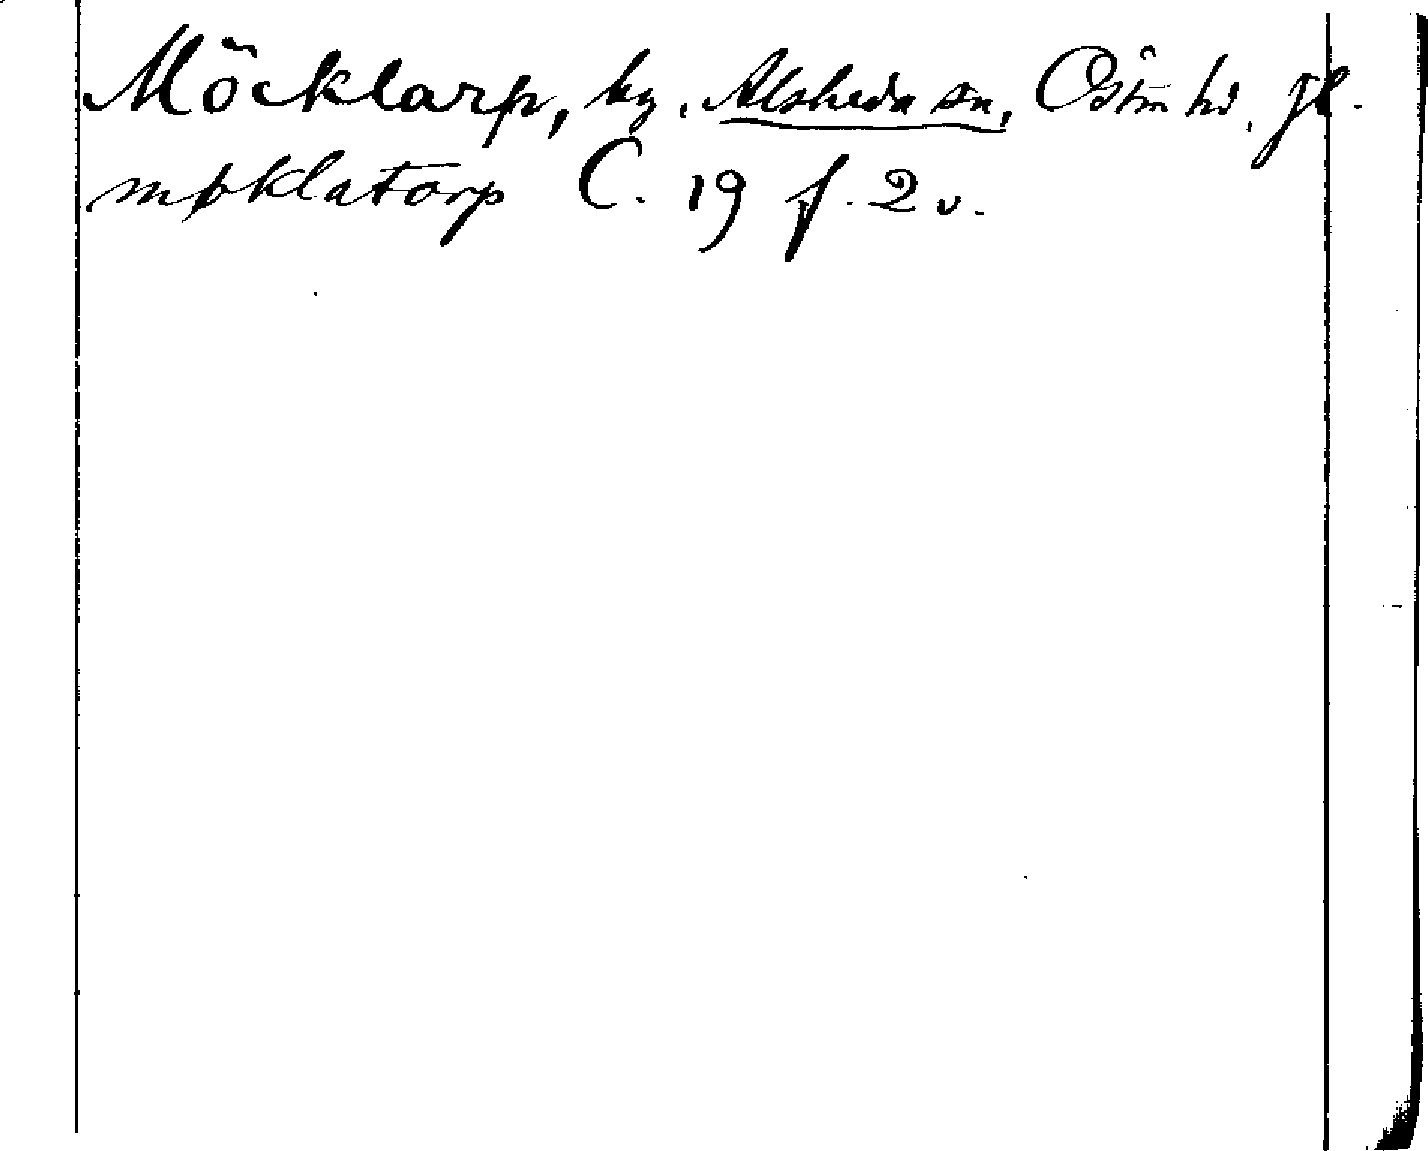 Möcklarp, by, Alsheda sn, Östra hd, Jl.
møklatorp C. 19 f. 2 v.